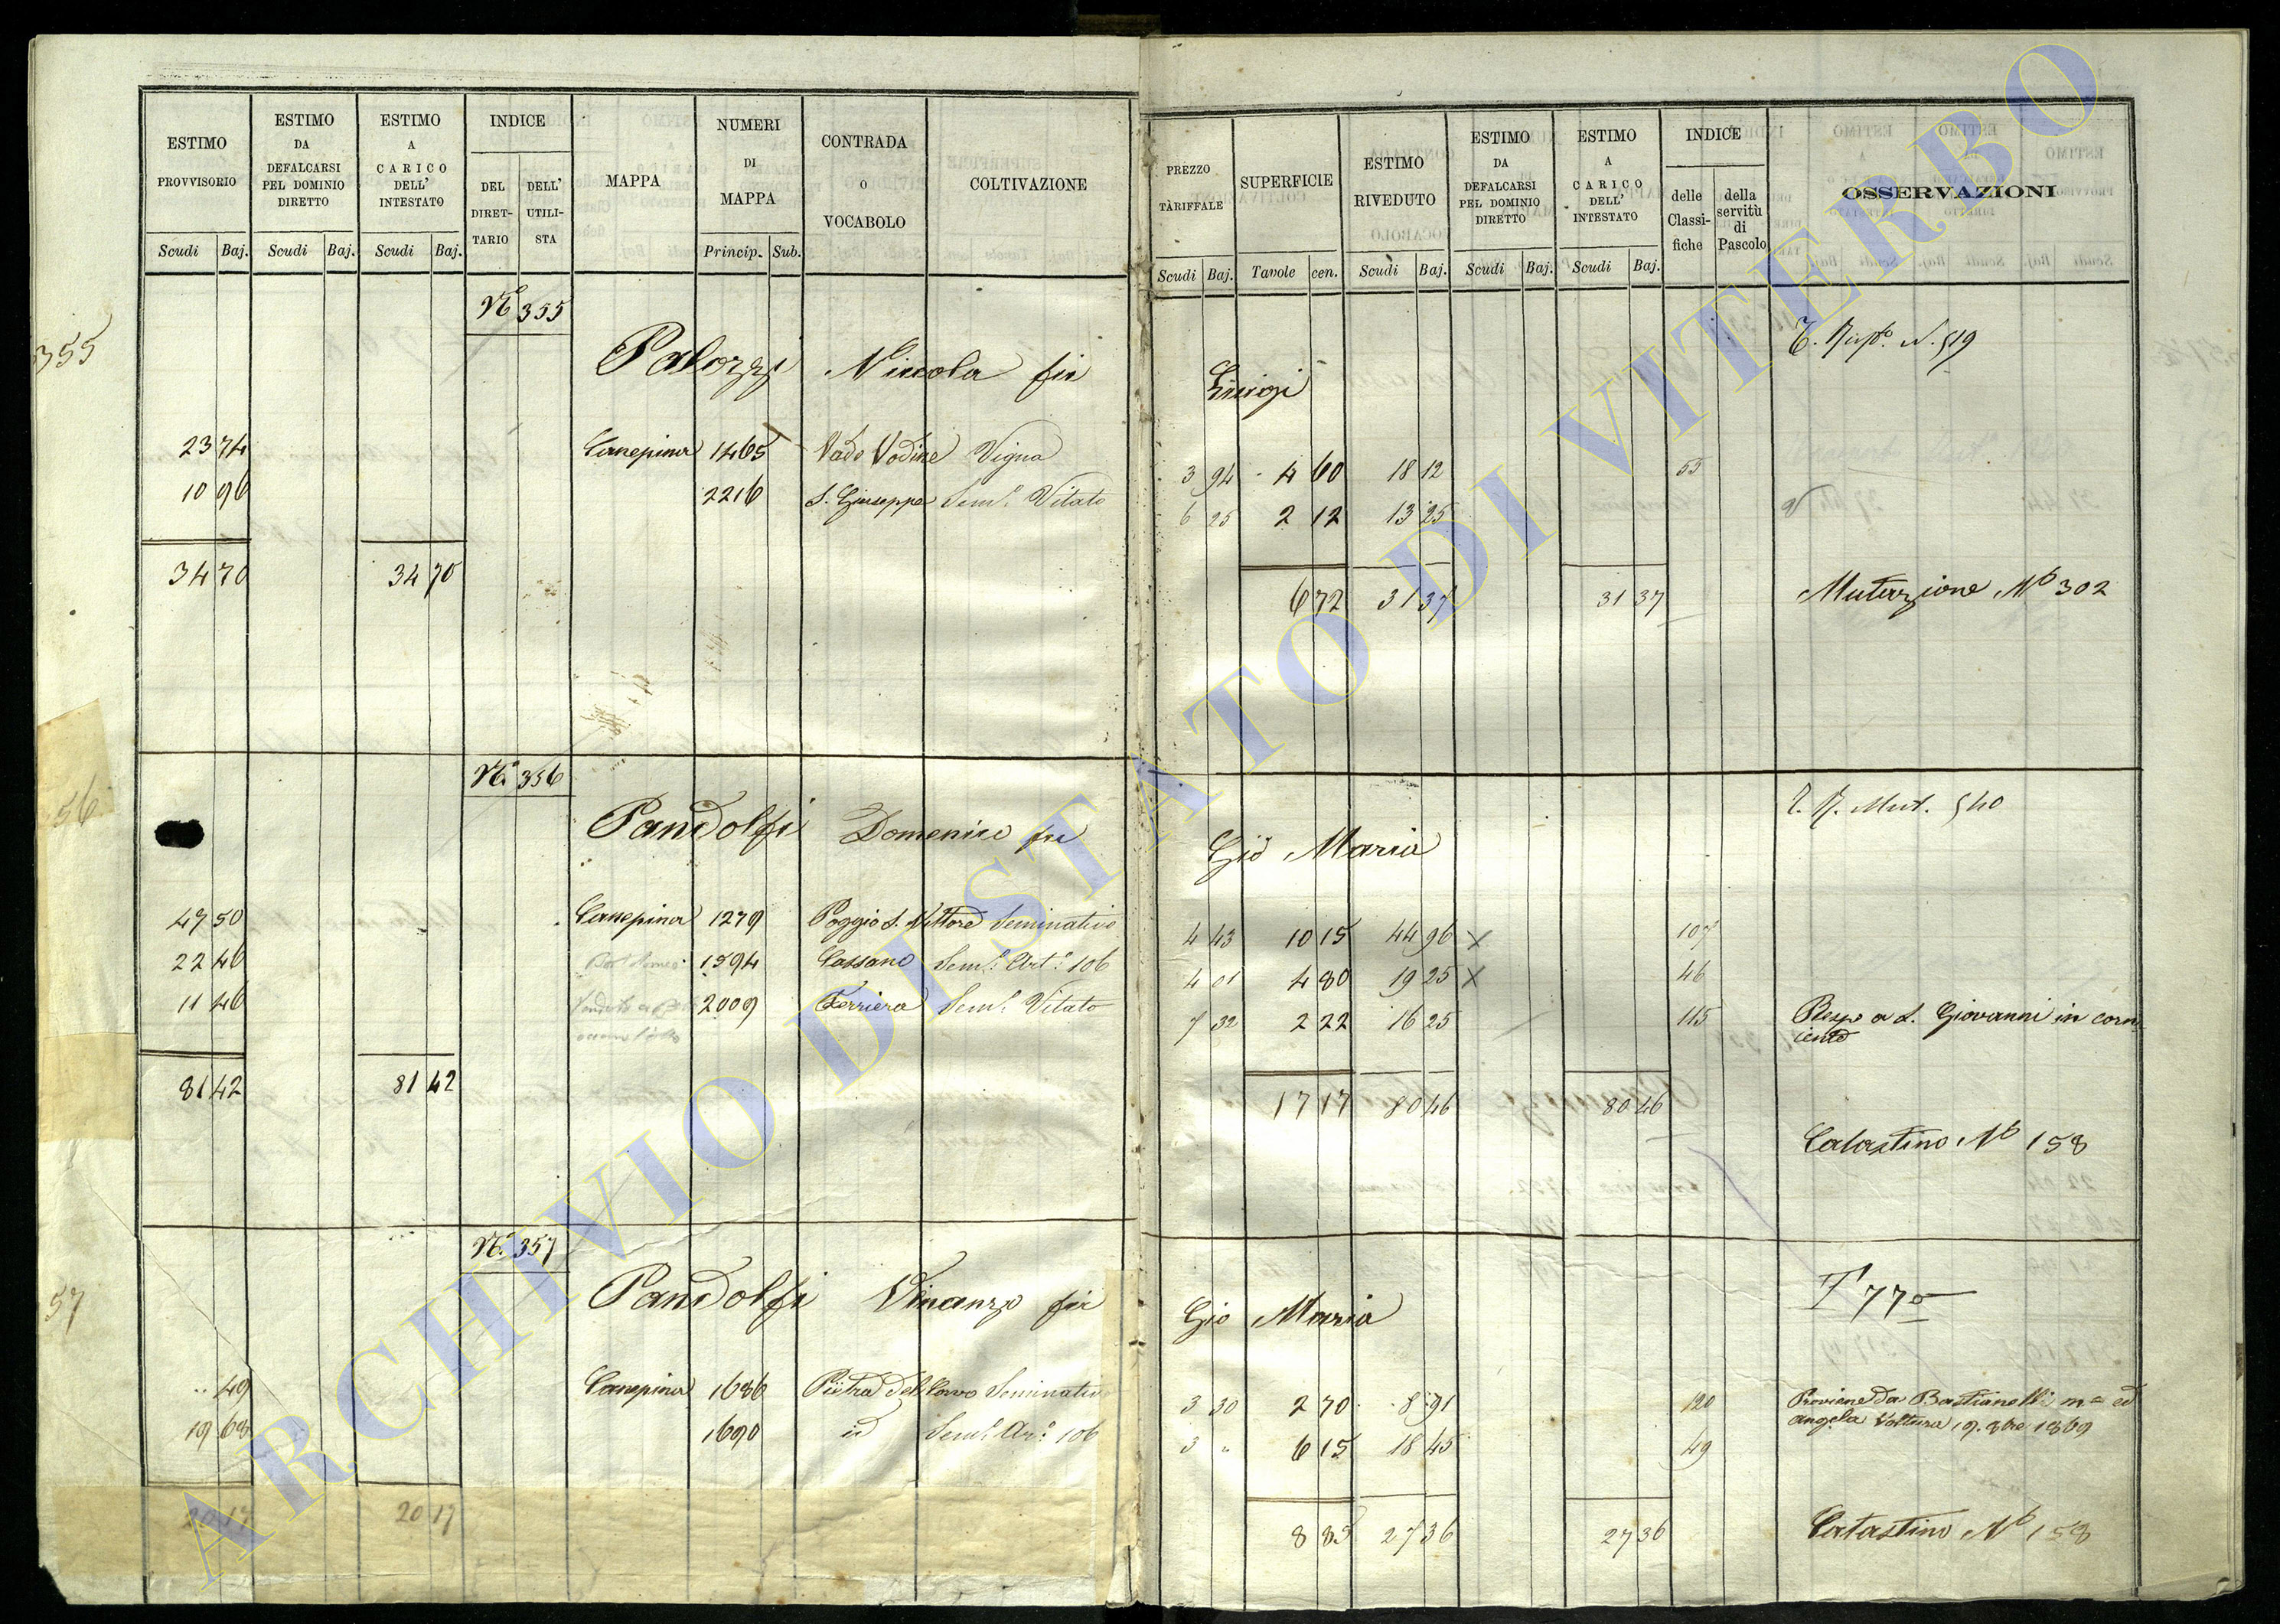 ESTIMO PROVVISORIO
Scudi Baj.
ESTIMO DA DEFALCARSI PEL DOMINIO DIRETTO
Scudi Baj.
ESTIMO A CARICO DELL' INTESTATO
Scudi Baj.
INDICE
DEL DIRET-TARIO
DELL' UTILI-STA
MAPPA
NUMERI DI MAPPA
Princip. Sub.
CONTRADA O VOCABOLO
COLTIVAZIONE
PREZZO TARIFFALE
Scudi Baj.
SUPERFICIE
Tavole cen.
ESTIMO RIVEDUTO
Scudi Baj.
ESTIMO DA DEFALCARSI PEL DOMINIO DIRETTO
Scudi Baj.
ESTIMO A CARICO DELL' INTESTATO
Scudi Baj.
INDICE
delle Classi-fiche
della servitù di Pascolo
OSSERVAZIONI
355
N° 355
N. 519
Palozzi Niccola fu Luigi
23 74 Canepina 1465 Vado Vodine Vigna 3 94 4 60 18 12 55
10 96 2216 S. Giuseppe Sem.° Vitato 6 25 2 12 13 25
34 70 34 70 6 72 31 37 31 37 Mutazione N° 302
56
N° 356
Mut. 540
Pandolfi Domenico fu Gio Maria
47 50 Canepina 1279 Poggio S. Vittore Seminativo 4 43 10 15 44 96 X 107
22 46 1594 Cassano Sem.° Art.° 106 4 01 4 80 19 25 X 46
11 46 2009 Ferriera Sem.° Vitato 7 32 2 22 16 25 115 Resp a S. Giovanni in corn
81 42 81 42 17 17 80 46 80 46
Catastino N° 158
57
N° 357
T 770
Pandolfi Vincenzo fu Gio Maria
49 Canepina 1686 Pietra del Corvo Seminativo 3 30 2 70 8 91 120 Proviene da Bastianelli m.a ed
angela Voltura 19. 8bre 1869
19 68 1690 id Sem.° Ar.° 106 3 " 6 15 18 45 49
20 17 20 17 8 85 27 36 27 36 Catastino N° 158
ARCHIVIO DI STATO DI VITERBO